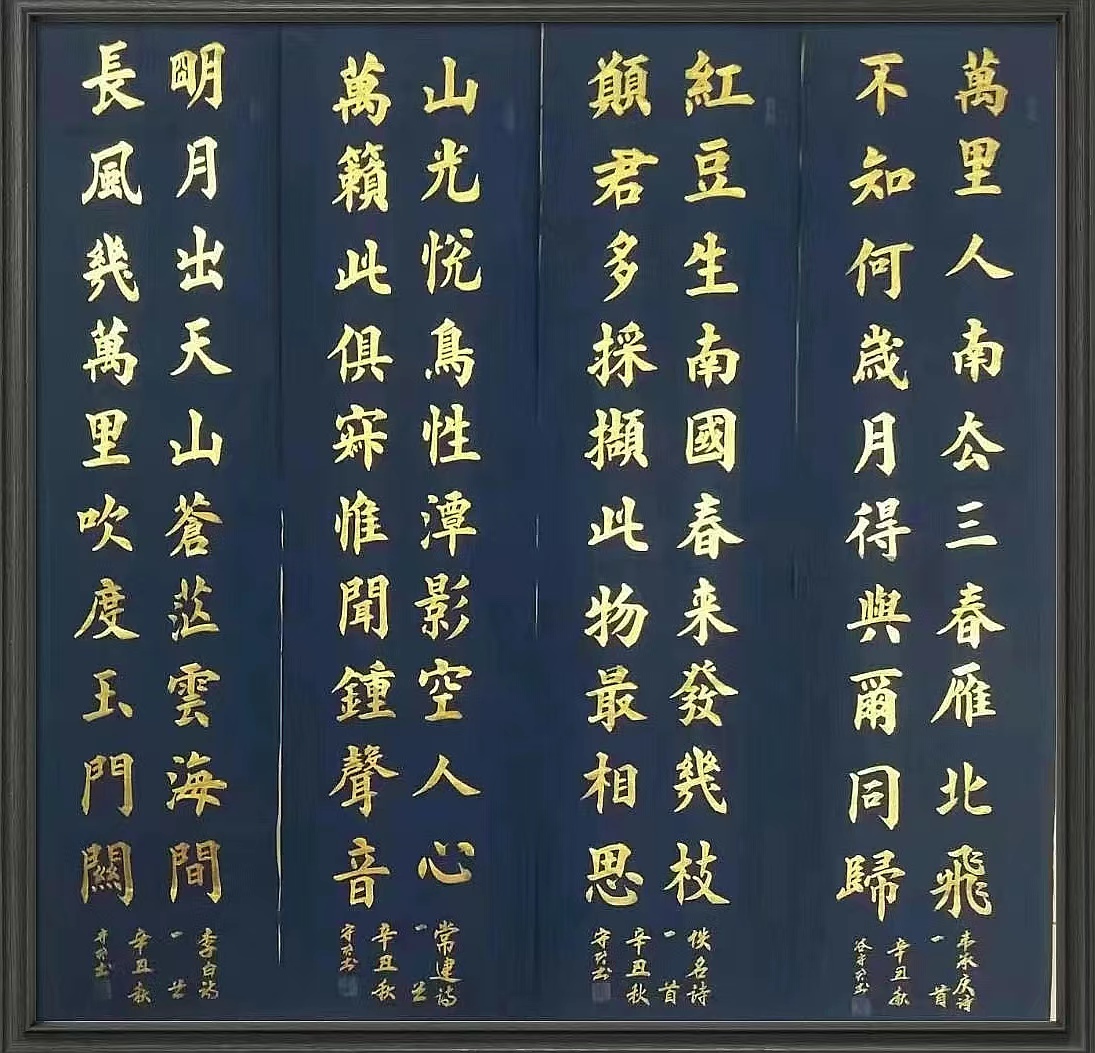 萬里人南厺三春雁北飛
不知何歲月得與爾同歸
韦承庆诗
一首
辛丑秋
紅豆生南國春来發幾枝
願君多採擷此物最相思
佚名詩
一首
辛丑秋
山光悦鳥性潭影空人心
萬籟此俱寂惟聞鍾聲音
常建詩
一首
辛丑秋
明月出天山蒼茫雲海間
長風幾萬里吹度玉門關
李白詩
一首
辛丑秋